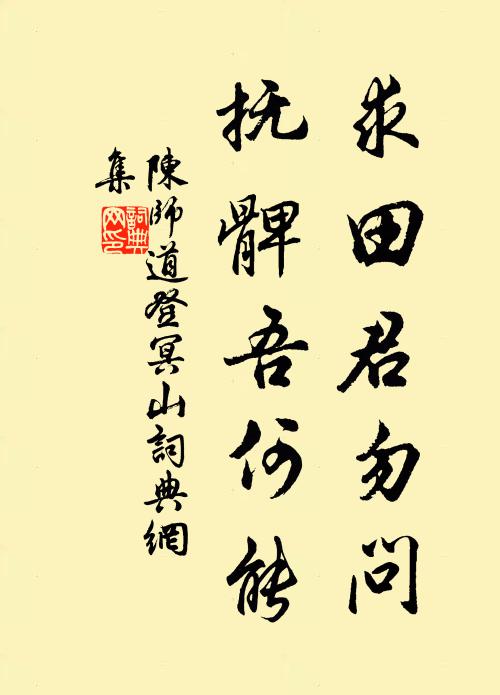 求田君勿问
抚髀吾何能
陳師道登冥山詞典網
集
詞典
网印